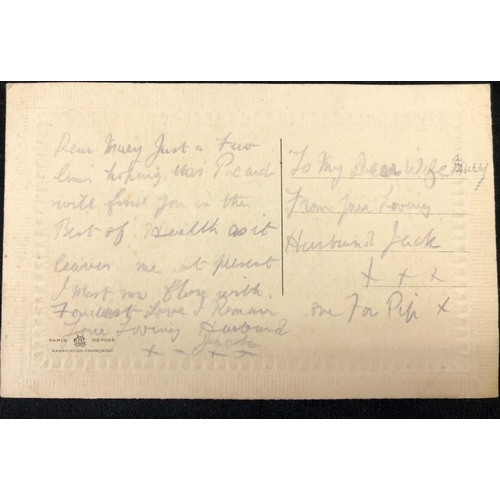 Dear Mury Just a Few
lines hoping this P card
will find you in the
Best of Health as it
leaves me at present
I must now Close with
Fondest Love I Remain
Your Loving Husband
Jack
x x x x
PARIS DEPOSE
FABRICATION FRANÇAISE
To My Dear Wife Mury
From your Loving
Husband Jack
x x x
one For Pip x